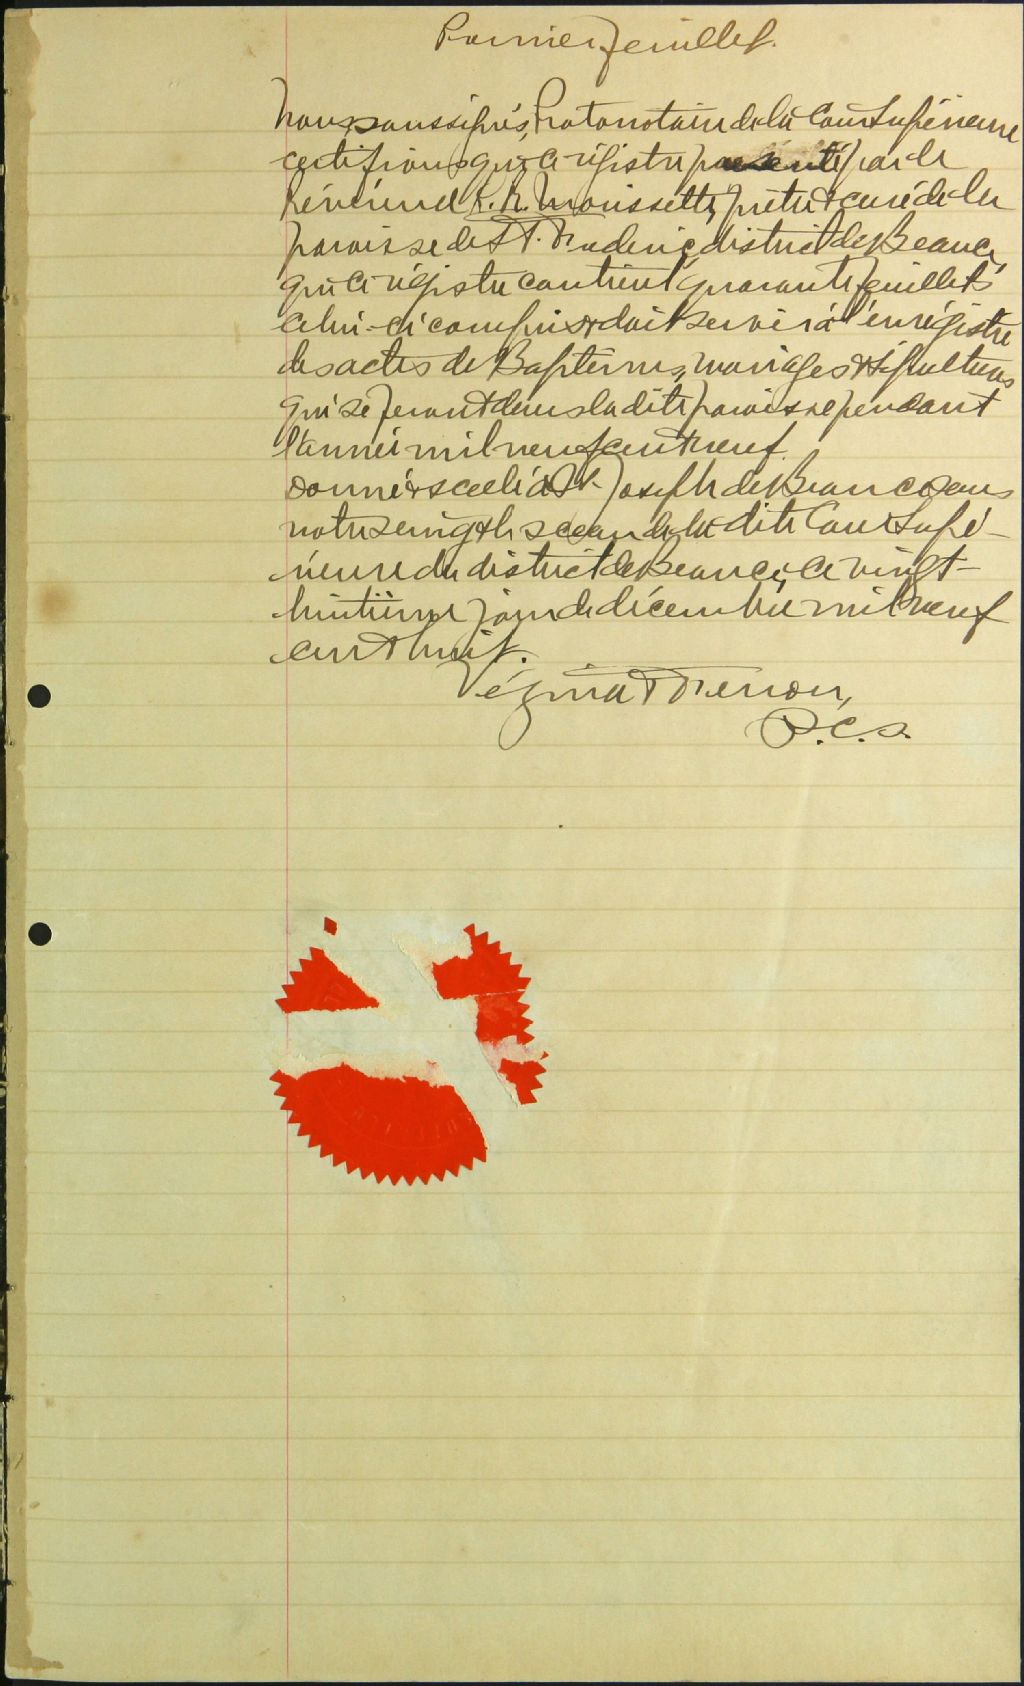 Premier feuillet.
Nous soussignés, Protonotaire de la Cour Supérieure
certifions que ce régistre présenté par le
Révérend Morissette, prêtre & curé de la
paroisse de St. Frederic, district de Beauce,
que ce régistre contient quarante feuillets
celui-ci compris & doit servir à l'enrégistre
des actes de Baptêmes, mariages & sépultures
qui se feront dans la dite paroisse pendant
l'année mil neuf cent neuf.
Donné & scellé à St. Joseph de Beauce sous
notre seing & le sceau de la dite Cour Supé-
rieure du district de Beauce, ce vingt-
huitième jour de décembre mil neuf
cent huit.
Vézina & Theriou,
P.C.S.